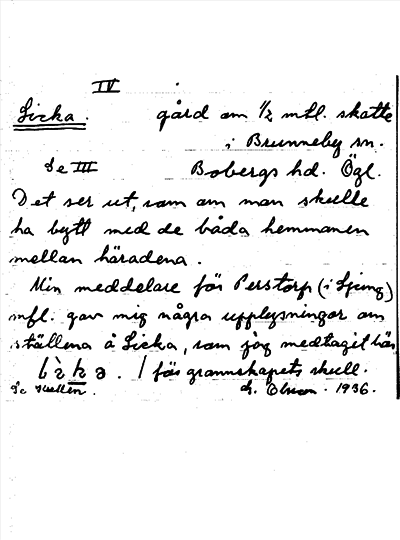 IV
Licka. gård om 1/2 mtl. skatte
i Brunneby sn.
Se III Bobergs hd. Ögl.
Det ser ut, som om man skulle
ha bytt med de båda hemmanen
mellan häradena.
Min meddelare för Perstorp (i Ljung)
mfl. gav mig några upplysningar om
ställena å Licka, som jag medtagit här
för grannskapets skull.
Se kullen. 1936.